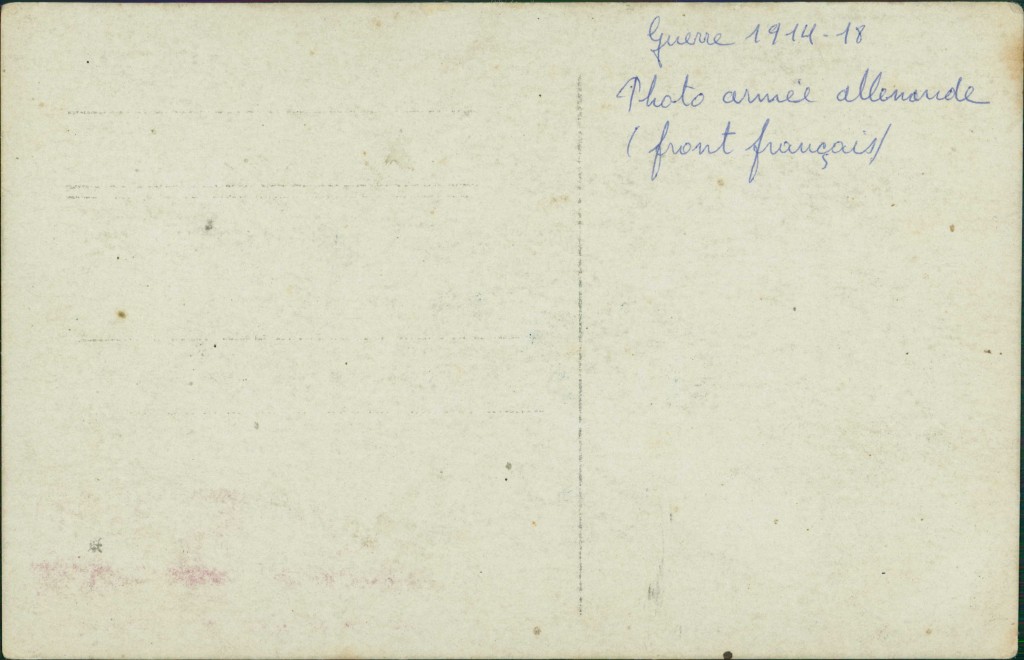 Guerre 1914-18
Photo armée allemande
(front français)